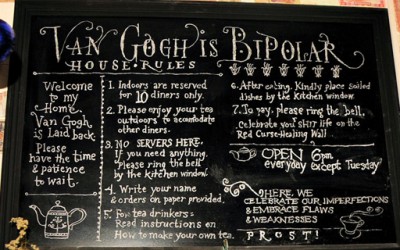 VAN GOGH IS BIPOLAR
HOUSE·RULES
Welcome
to my
Home.
Van Gogh
is Laid back.
Please
have the time
& patience
to wait.
1. Indoors are reserved
for 10 diners only.
2. Please enjoy your tea
outdoors to accomodate
other diners.
3. NO SERVERS HERE.
If you need anything,
Please ring the bell
by the kitchen window.
4. Write your name
& orders on paper provided.
5. For tea drinkers:
Read instructions on
How to make your own tea.
6. After eating, Kindly place soiled
dishes by the kitchen window.
7. To pay, please ring the bell.
Celebrate you life on the
Red Curse-Healing Wall
OPEN 6pm
everyday except Tuesday
HERE, WE
CELEBRATE OUR IMPERFECTIONS
& EMBRACE FLAWS
& WEAKNESSES
PROST!